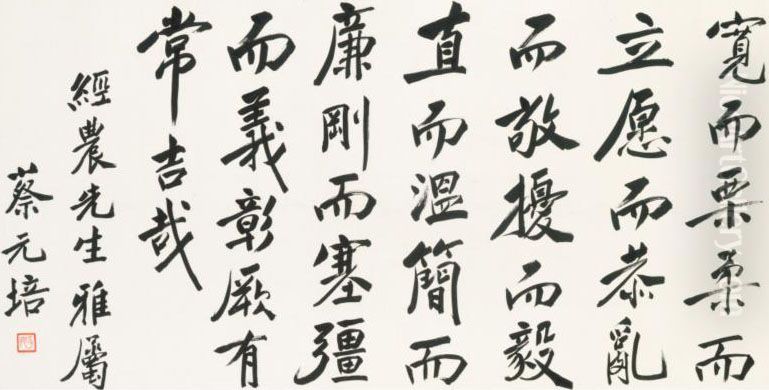 寬而栗柔而
立愿而恭亂
而敬擾而毅
直而溫簡而
廉剛而塞彊
而義彰厥有
常吉哉
經農先生雅屬
蔡元培